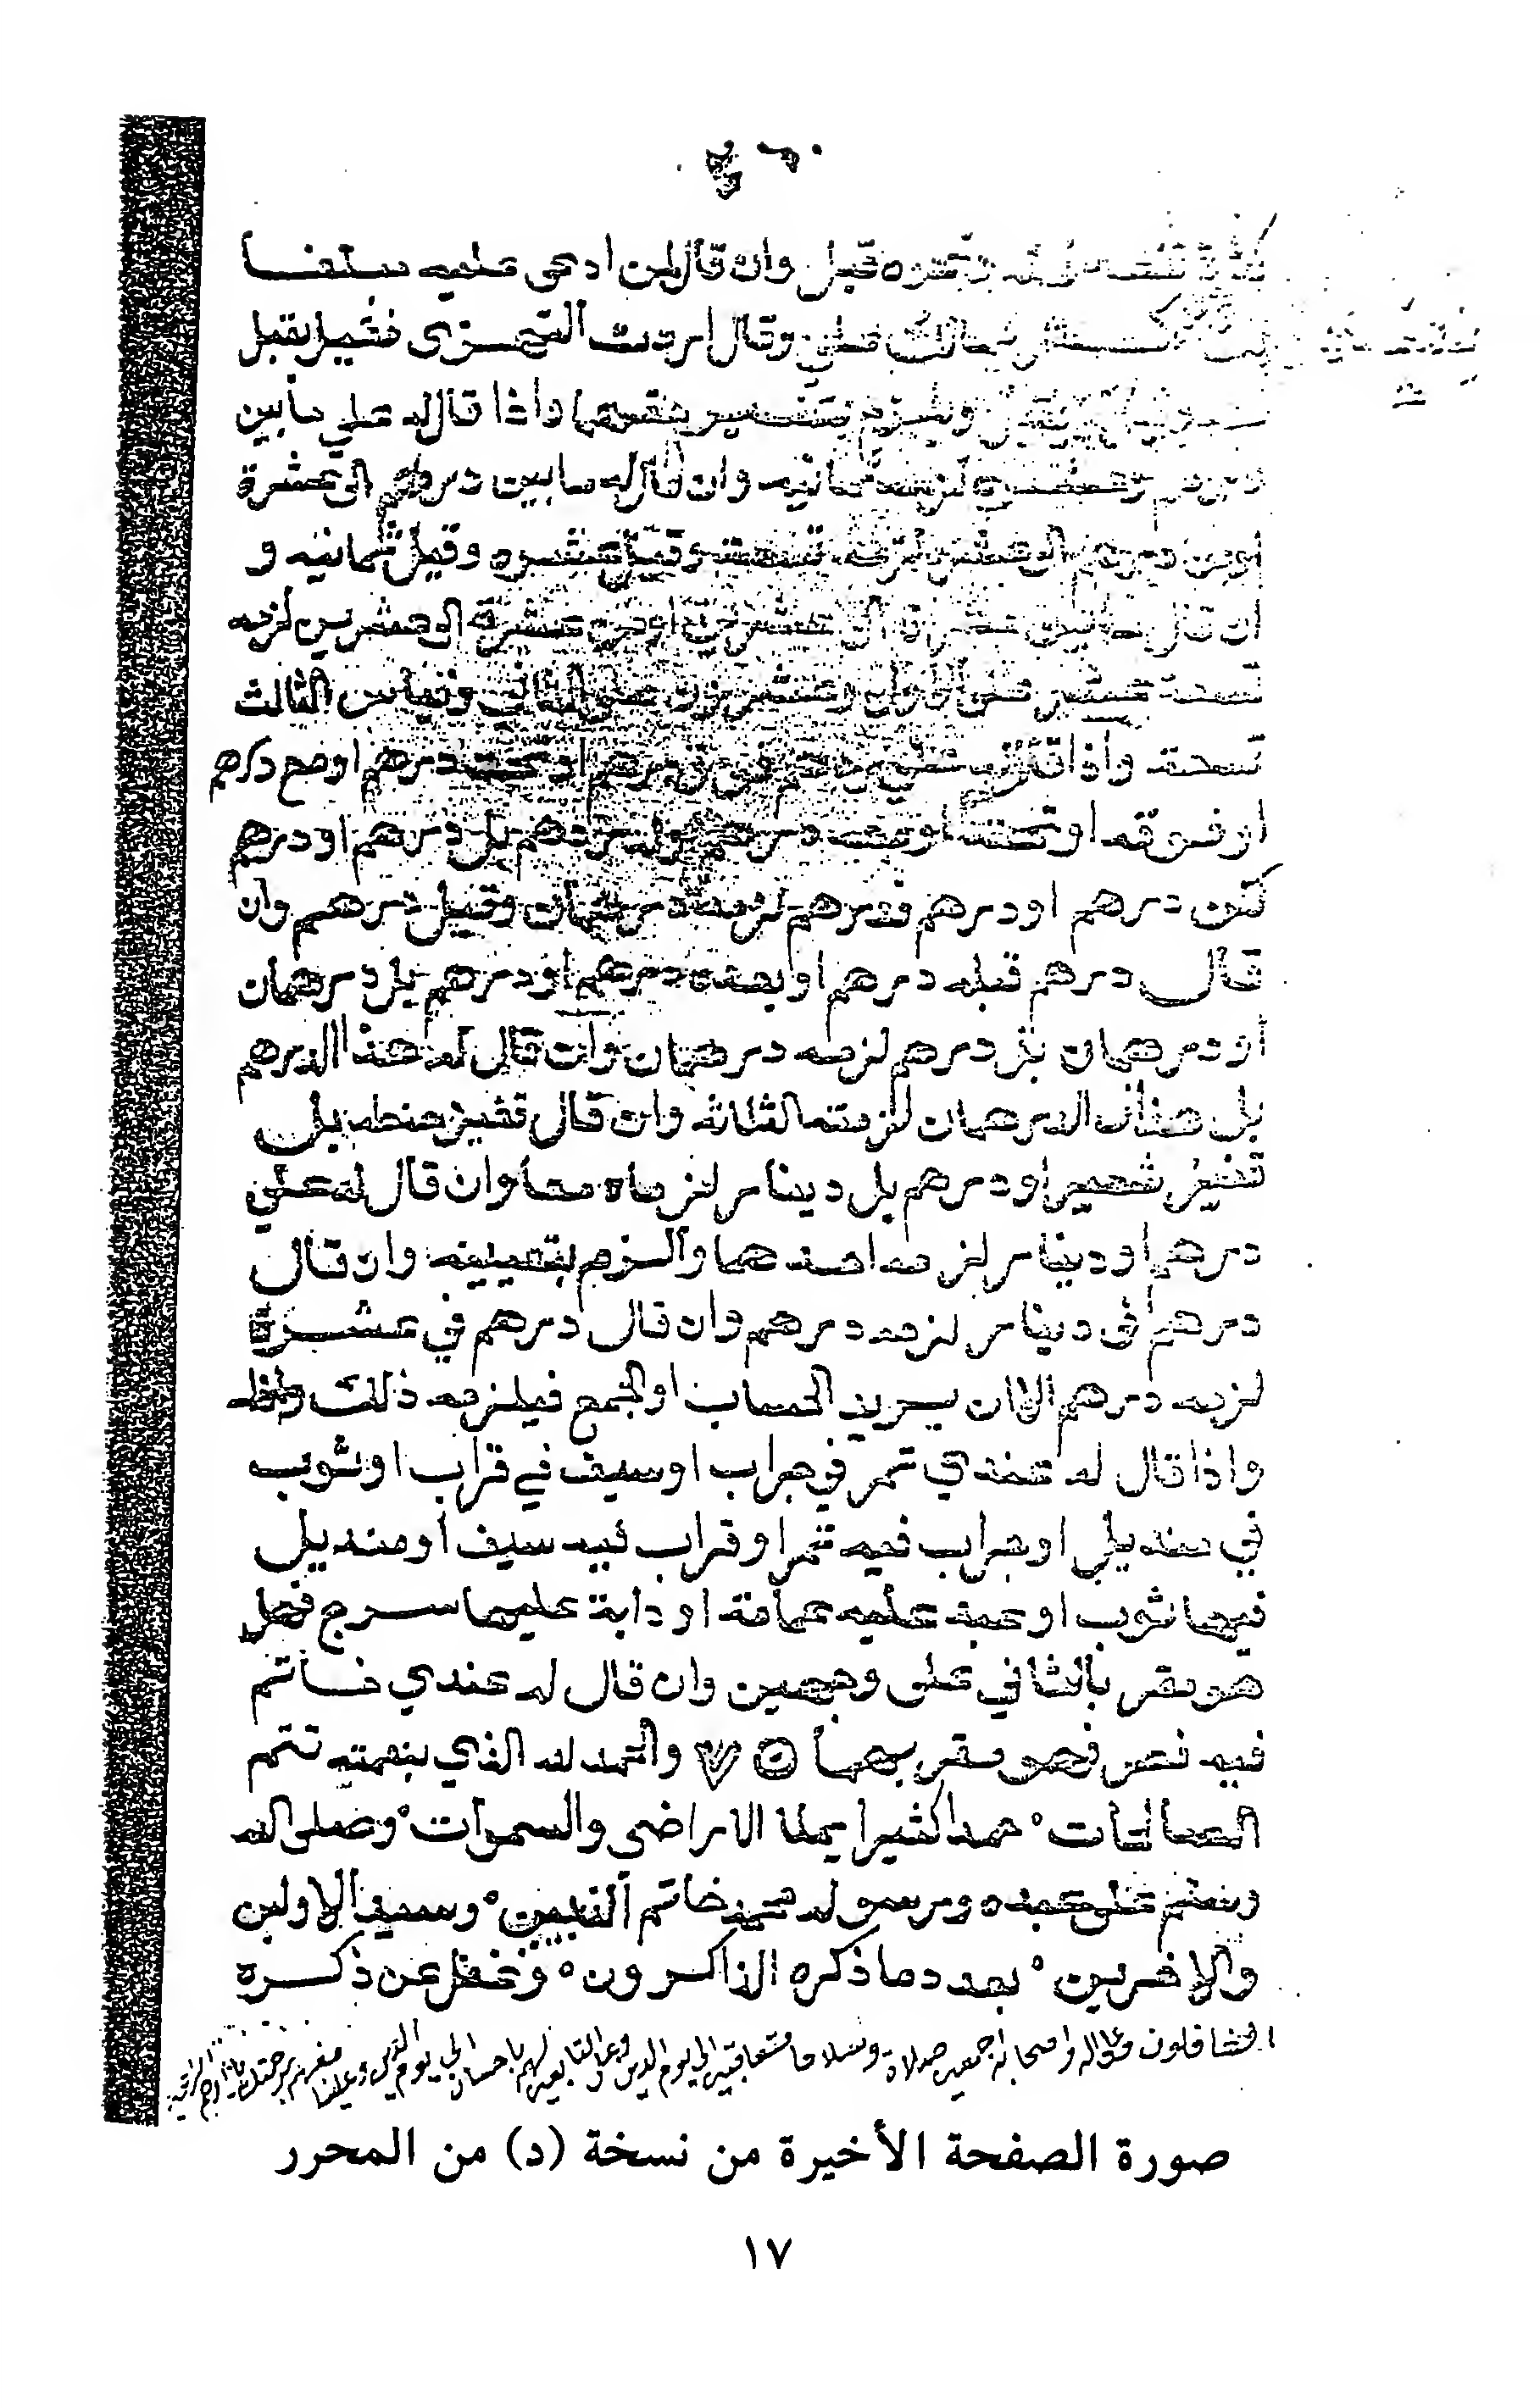 قبل وان قال لمن ادعى عليه سلفا
وقال اردت التهزى فهل يقبل
ويلزم بتفسيرها واذا قال له علي ما بين
درهم وعشره لزمه ثمانيه وان قال له ما بين درهم الى عشرة
او من درهم الى عشره لزمه تسعه وقيل عشره وقيل ثمانيه و
ان قال له الى عشرين لزمه
تسعة عشر على الاول وعشرون على الثاني وقياس الثالث
تسعة واذا قال له علي درهم فوق درهم او تحت درهم او مع درهم
او فوقه او تحته او معه درهم او درهم بل درهم او درهم
لكن درهم او درهم فدرهم لزمه درهمان وقيل درهم وان
قال درهم قبله درهم او بعده درهم او درهم بل درهمان
او درهمان بل درهم لزمه درهمان وان قال له هذا الدرهم
بل هذان الدرهمان لزمته الثلاثه وان قال قفيز حنطه بل
قفيز شعير او درهم بل دينار لزماه معا وان قال له علي
درهم او دينار لزمه احدهما والزم بتعيينه وان قال
درهم فى دينار لزمه درهم وان قال درهم في عشرة
لزمه درهم الا ان يريد الحساب او الجمع فيلزمه ذلك
واذا قال له عندي تمر في جراب او سيف في قراب او ثوب
في منديل او جراب فيه تمر او قراب فيه سيف او منديل
فيها ثوب او عبد عليه عمامة او دابة عليها سرج فهل
هو مقر بالثاني على وجهين وان قال له عندي خاتم
فيه فص فهو مقر بهما والحمد لله الذي بنعمته تتم
الصالحات حمدا كثيرا يملا الاراضى والسموات وصلى الله
وسلم على عبده ورسوله محمد خاتم النبيين وسيد الاولين
والاخرين بعدد ما ذكره الذاكرون وغفل عن ذكره
الغافلون وعلى اله واصحابه اجمعين صلاة وسلاما متعاقبين الى يوم الدين وعلى التابعين لهم باحسان الى يوم الدين وعلينا معهم برحمتك يا ارحم الراحمين
صورة الصفحة الأخيرة من نسخة (د) من المحرر
١٧